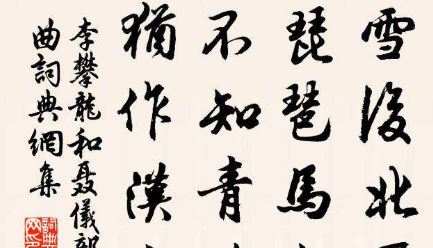 雪後北
琵琶馬
不知青
猶作漢
李攀龍和聶儀部
曲詞典網集